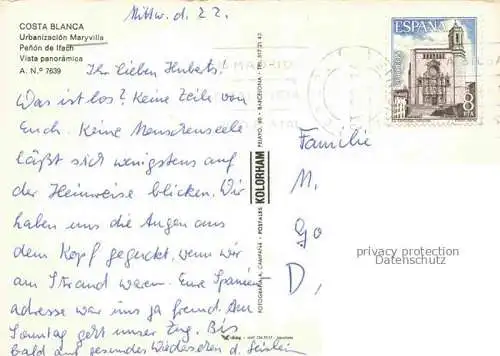 COSTA BLANCA
Urbanización Maryvilla
Peñón de Ifach
Vista panorámica
A. N.º 7639
Mittw. d. 22.
Ihr lieben Huberts!
Was ist los? Keine Zeile von
Euch. Keine Menschenseele
läßt sich wenigstens auf
der Heimreise blicken. Wir
haben uns die Augen aus
dem Kopf geguckt, wenn wir
am Strand waren. Eure Spanien-
adresse war uns ja fremd. Am
Sonntag geht unser Zug. Bis
bald auf gesundes Wiedersehen d.
FOTOGRAFIA A. CAMPAÑA - POSTALES KOLORHAM PELAYO, 60 - BARCELONA - TEL. 317 21 43
ESPAÑA
8
PTA
Familie
M.
Go
D,
privacy protection
Datenschutz